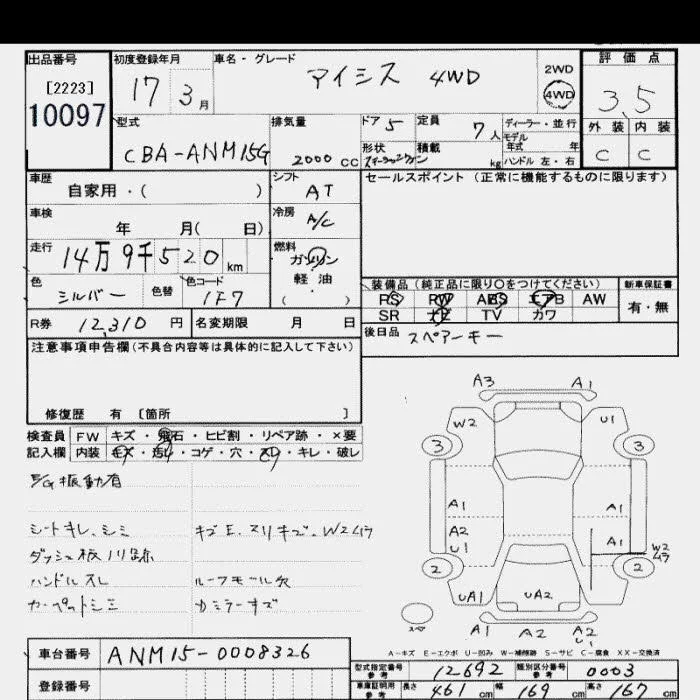 出品番号 初度登録年月 車名・グレード 評価点
[2223] 17 3月 アイシス 4WD 2WD 3.5
10097 4WD
型式 排気量 ドア 5 定員 7人 ディーラー・並行 外装 内装
CBA-ANM15G 2000 CC 形状 積載 kg モデル年式 年 C C
ハンドル 左・右
車歴 シフト セールスポイント (正常に機能するものに限ります)
自家用・( ) AT
車検 冷房
年 月( 日) A/C
走行 燃料
14万9千520 km ガソリン
色 色替 色コード 軽油 装備品 (純正品に限り○をつけてください) 新車保証書
シルバー 1F7 ( ) PS PW ABS エアB AW 有・無
SR ナビ TV カワ
R券 12,310 円 名変期限 月 日 後日品 スペアーキー
注意事項申告欄(不具合内容等は具体的に記入して下さい)
修復歴 有 [箇所 ]
検査員 FW キズ・飛石・ヒビ割・リペア跡・×要
記入欄 内装 キズ・汚レ・コゲ・穴・スレ・キレ・破レ
E/G振動有
シートキレ、シミ キズE、スリキズ、W2ムラ
ダッシュ板ノリ跡
ハンドルスレ ルーフモール欠
カーペットシミ カミラーキズ
A3 A1
W2 U1
3 3
A1 A1
A2 A1
U1 W2
ムラ
2 2
UA1 UA2 U1
A1 A2 A2
U1
A-キズ E-エクボ U-凹み W-補修跡 S-サビ C-腐食 XX-交換済
車台番号 ANM15-0008326
型式指定番号 参考 12692 類別区分番号 参考 0003
登録番号 車庫証明用 参考 長さ 461 cm 幅 169 cm 高さ 167 cm